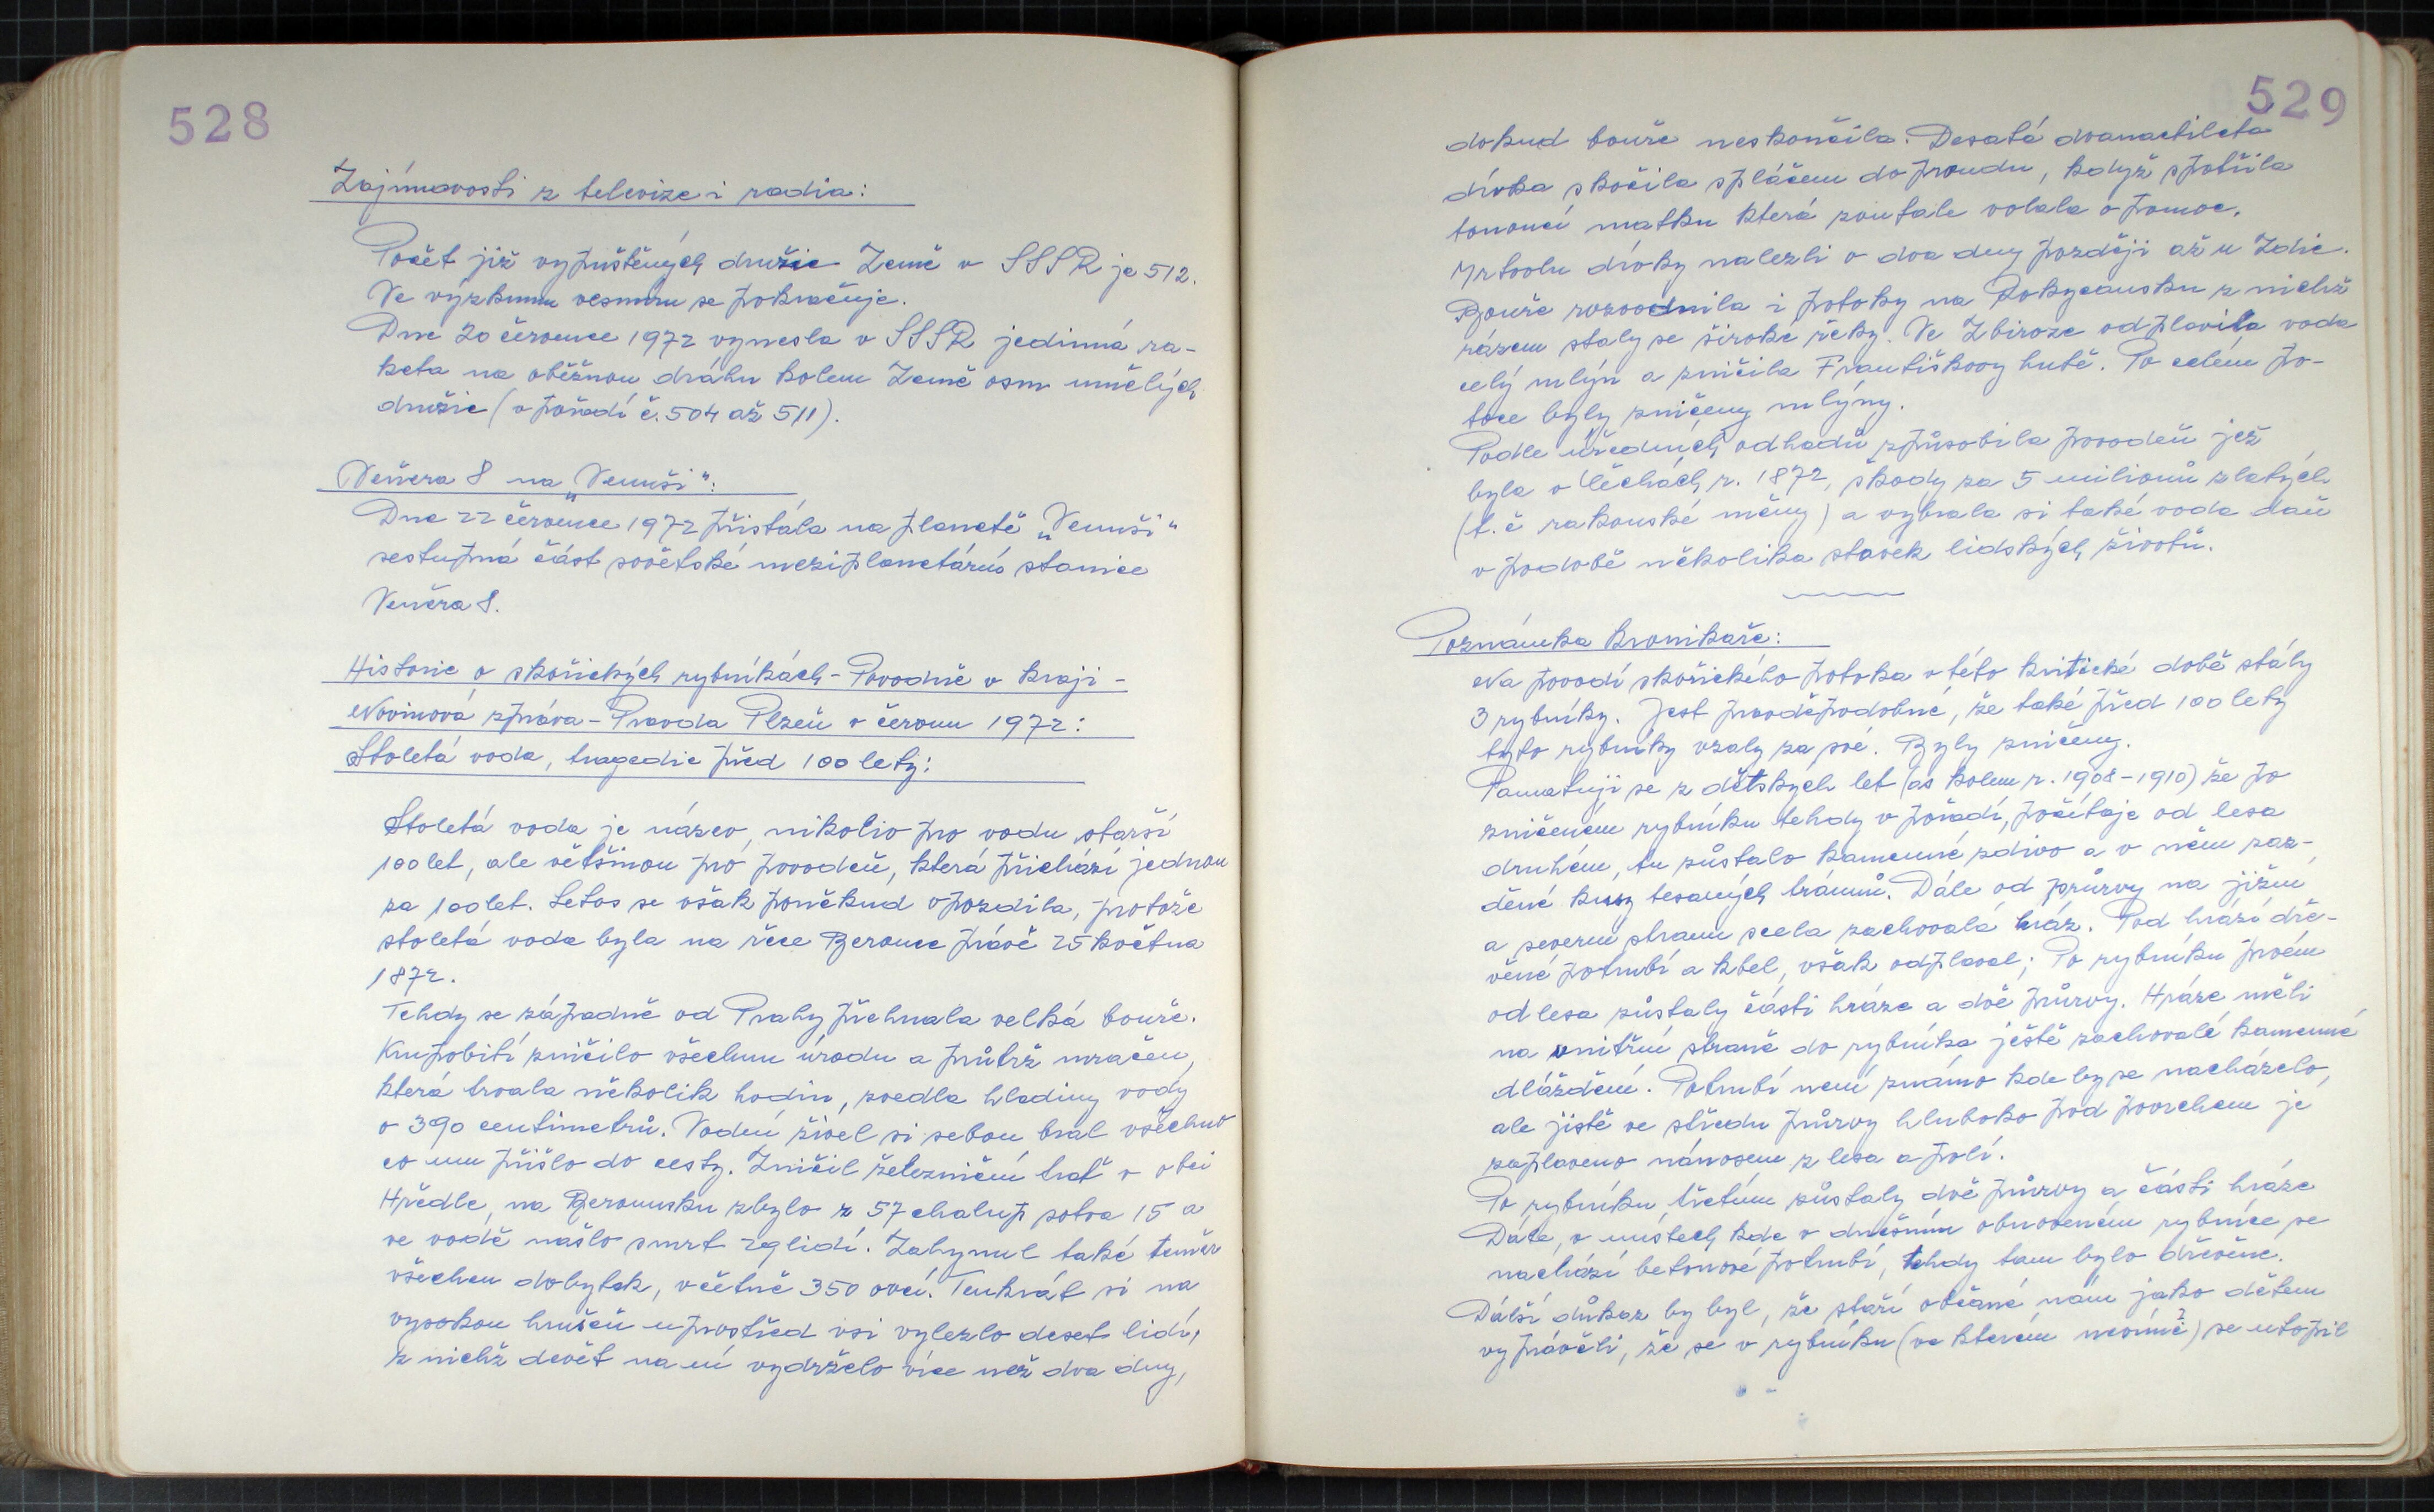 528
Zajímavosti z televize i radia:
Počet již vypuštěných družic Země v SSSR je 512.
Ve výzkumu vesmíru se pokračuje.
Dne 20 července 1972 vynesla v SSSR jedinná ra-
keta na oběžnou dráhu kolem Země osm umělých
družic (v pořadí č. 504 až 511).
Veněra 8 na „Venuši":
Dne 22 července 1972 přistála na planetě „Venuši"
sestupná část sovětské meziplanetární stanice
Veněra 8.
Historie o skořických rybníkách - Povodně v kraji -
Novinová zpráva - Pravda Plzeň v červnu 1972:
Stoletá voda, tragedie před 100 lety:
Stoletá voda je název, nikoliv pro vodu starší
100 let, ale většinou pro povodeň, která přichází jednou
za 100 let. Letos se však poněkud opozdila, protože
stoletá voda byla na řece Berounce právě 25 května
1872.
Tehdy se západně od Prahy přehnala velká bouře.
Krupobití zničilo všechnu úrodu a průtrž mračen,
která trvala několik hodin, zvedla hladiny vody
o 390 centimetrů. Vodní živel si sebou bral všechno
co mu přišlo do cesty. Zničil železniční trať v obci
Hředle, na Berounsku zbylo z 57 chalup sotva 15 a
ve vodě našlo smrt 29 lidí. Zahynul také téměř
všechen dobytek, včetně 350 ovcí. Tenkrát si na
vysokou hrušeň uprostřed vsi vylezlo deset lidí,
z nichž devět na ní vydrželo více než dva dny,
529
dokud bouře neskončila. Desatá dvanactiletá
dívka skočila s pláčem do proudu, když spatřila
tonoucí matku která zoufale volala o pomoc.
Mrtvolu dívky nalezli o dva dny později až u Zdic.
Bouře rozvodnila i potoky na Rokycansku z nichž
rázem staly se široké řeky. Ve Zbiroze odplavila voda
celý mlýn a zničila Františkovy hutě. Po celém po-
toce byly zničeny mlýny.
Podle úředních odhadů způsobila povodeň jež
byla v Čechách r. 1872, škody za 5 milionů zlatých
(t. č rakouské měny) a vybrala si také voda daň
v podobě několika stovek lidských životů.
Poznámka kronikaře:
Na povodí skořického potoka v této kritické době stály
3 rybníky. Jest pravděpodobné, že také před 100 lety
tyto rybníky vzaly za své. Byly zničeny.
Pamatuji se z dětských let (as kolem r. 1908-1910) že po
zničeném rybníku tehdy v pořadí, počítaje od lesa
druhém, tu zůstalo kamenné zdivo a v něm zaz-
děné kusy tesaných trámů. Dále od průrvy na jižní
a severní stranu zcela zachovalá hráz. Pod hrází dře-
věné potrubí a kbel, však odplaval; Po rybníku prvém
od lesa zůstaly části hráze a dvě průrvy. Hráze měli
na vnitřní straně do rybníka ještě zachovalé kamenné
dláždění. Potrubí není známo kde by se nacházelo,
ale jistě ve středu průrvy hluboko pod povrchem je
zaplaveno nánosem z lesa a polí.
Po rybníku třetím zůstaly dvě průrvy a části hráze
Dále, v místech kde v dnešním obnoveném rybníce se
nachází betonové potrubí, tehdy tam bylo dřevěné.
Další důkaz by byl, že staří občané nám jako dětem
vyprávěli, že se v rybníku (ve kterém nevíme?) se utopil